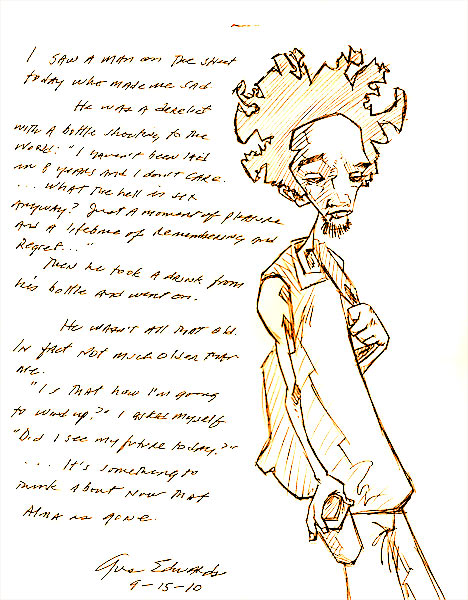 I SAW A MAN on The Street
Today who made me SAD.
He was a derelict
with a bottle shouting to the
World: "I haven't been laid
in 8 years and I don't care.
... What the hell is sex
anyway? Just a moment of pleasure
and a lifetime of remembering and
Regret..."
Then he took a drink from
his bottle and went on.
He wasn't all that old.
In fact not much older than
me.
"Is that how I'm going
to wind up?" I asked myself
"Did I see my future today?"
... It's something to
think about now that
Alma is gone.
Gus Edwards
9-15-10